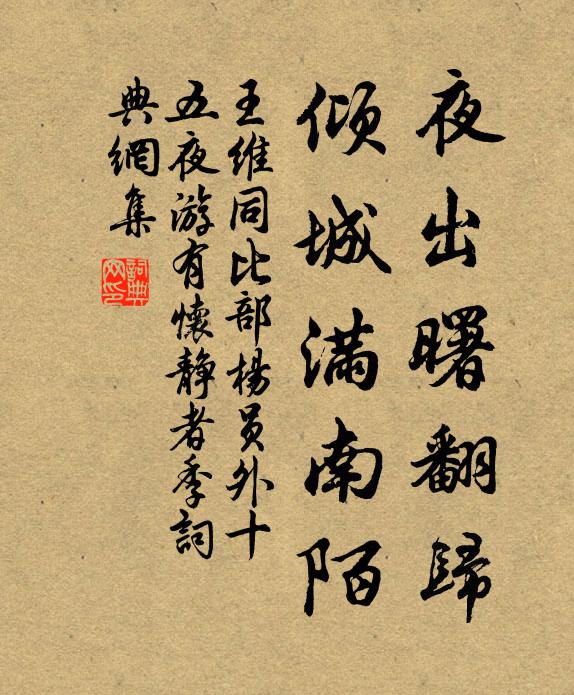 夜出曙翻歸
傾城滿南陌
王維同比部楊員外十
五夜游有懷靜者季詞
典網集
詞典網印